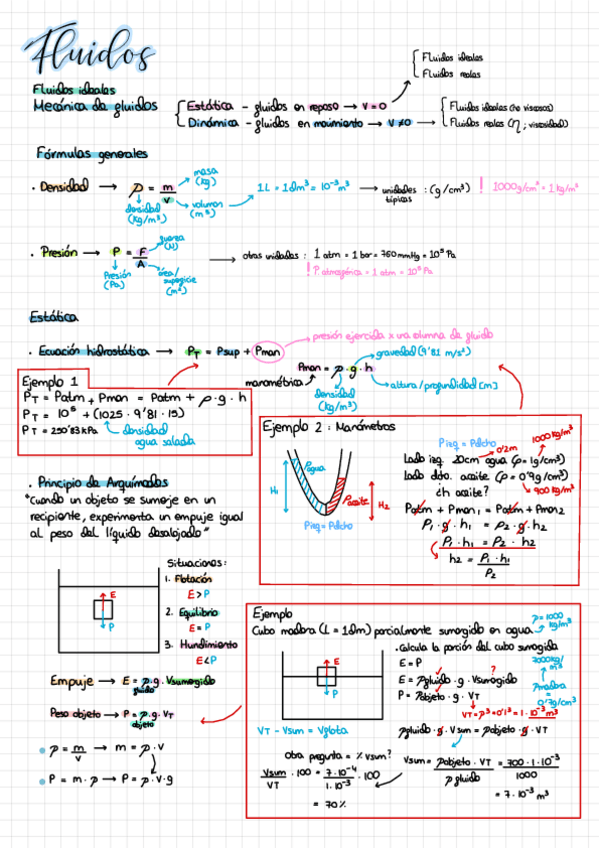 Fluidos
Fluidos ideales
Mecánica de fluidos
Estática - fluidos en reposo → v = 0
Fluidos ideales
Fluidos reales
Dinámica - fluidos en movimiento → v ≠ 0 →
Fluidos ideales (no viscosos)
Fluidos reales (η; viscosidad)
Fórmulas generales
· Densidad → ρ = m/v
masa (kg)
volumen (m³)
densidad (kg/m³)
1L = 1dm³ = 10⁻³ m³ → unidades típicas : (g/cm³) ! 1000g/cm³ = 1 kg/m³
· Presión → P = F/A
fuerza (N)
Presión (Pa)
área/superficie (m²)
→ otras unidades : 1 atm = 1 bar = 760 mmHg = 10⁵ Pa
! P. atmosférica = 1 atm = 10⁵ Pa
Estática
· Ecuación hidrostática → PT = Psup + Pman
presión ejercida x una columna de fluido
Pman = ρ · g · h
manométrica
gravedad (9'81 m/s²)
altura/profundidad [m]
densidad (kg/m³)
Ejemplo 1
PT = Patm + Pman = Patm + ρ · g · h
PT = 10⁵ + (1025 · 9'81 · 15)
PT = 250'83 kPa
densidad agua salada
Ejemplo 2 : Manómetros
Pizq = Pdcho
H1
ρagua
ρaceite
H2
Pizq = Pdcho
0'2m
1000 kg/m³
Lado izq. 20cm agua (ρ = 1g/cm³)
Lado dcho. aceite (ρ = 0'9g/cm³)
900 kg/m³
¿h aceite?
Patm + Pman1 = Patm + Pman2
ρ1 · g · h1 = ρ2 · g · h2
ρ1 · h1 = ρ2 · h2
h2 = ρ1 · h1 / ρ2
· Principio de Arquímedes
"Cuando un objeto se sumerje en un
recipiente, experimenta un empuje igual
al peso del líquido desalojado"
E
P
Situaciones:
1. Flotación
E > P
2. Equilibrio
E = P
3. Hundimiento
E < P
Empuje → E = ρ · g · Vsumergido
fluido
Peso objeto → P = ρ · g · VT
objeto
ρ = m/v → m = ρ · v
P = m · g → P = ρ · v · g
Ejemplo
Cubo madera (L = 1dm) parcialmente sumergido en agua
ρ = 1000 kg/m³
· Calcula la porción del cubo sumergida
ρmadera = 0'7g/cm³
E
P
VT - Vsum = Vflota
E = P
E = ρfluido · g · Vsumergido
?
P = ρobjeto · g · VT
ρfluido · g · Vsum = ρobjeto · g · VT
Vsum = ρobjeto · VT / ρfluido = 700 · 1 · 10⁻³ / 1000
= 7 · 10⁻⁴ m³
Otra pregunta = ¿% Vsum?
Vsum/VT · 100 = 7 · 10⁻⁴ / 1 · 10⁻³ · 100
= 70%